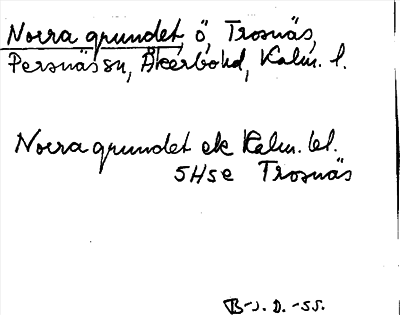 Norra grundet, ö, Trosnäs,
Persnäs sn, Åkerbo hd, Kalm. l.
Norra grundet ek Kalm. bl.
5H5e Trosnäs
B-J. D. -55.